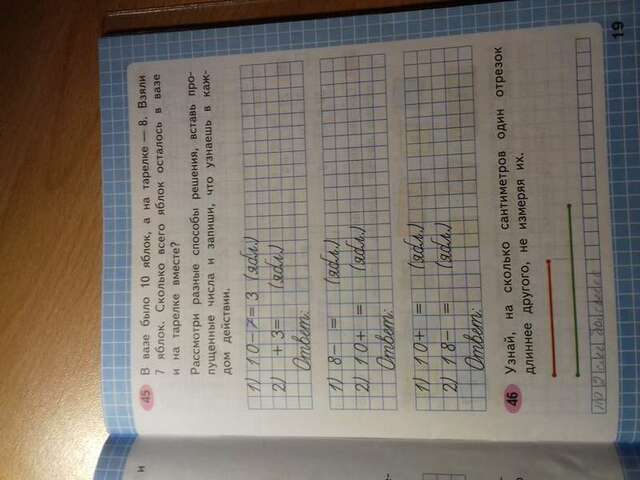 и
45 В вазе было 10 яблок, а на тарелке — 8. Взяли
7 яблок. Сколько всего яблок осталось в вазе
и на тарелке вместе?
Рассмотри разные способы решения, вставь про-
пущенные числа и запиши, что узнаешь в каж-
дом действии.
1) 10 – 7 = 3 (ябл.)
2) + 3 = (ябл.)
Ответ:
1) 8 – = (ябл.)
2) 10 + = (ябл.)
Ответ:
1) 10 + = (ябл.)
2) 18 – = (ябл.)
Ответ:
46 Узнай, на сколько сантиметров один отрезок
длиннее другого, не измеряя их.
19